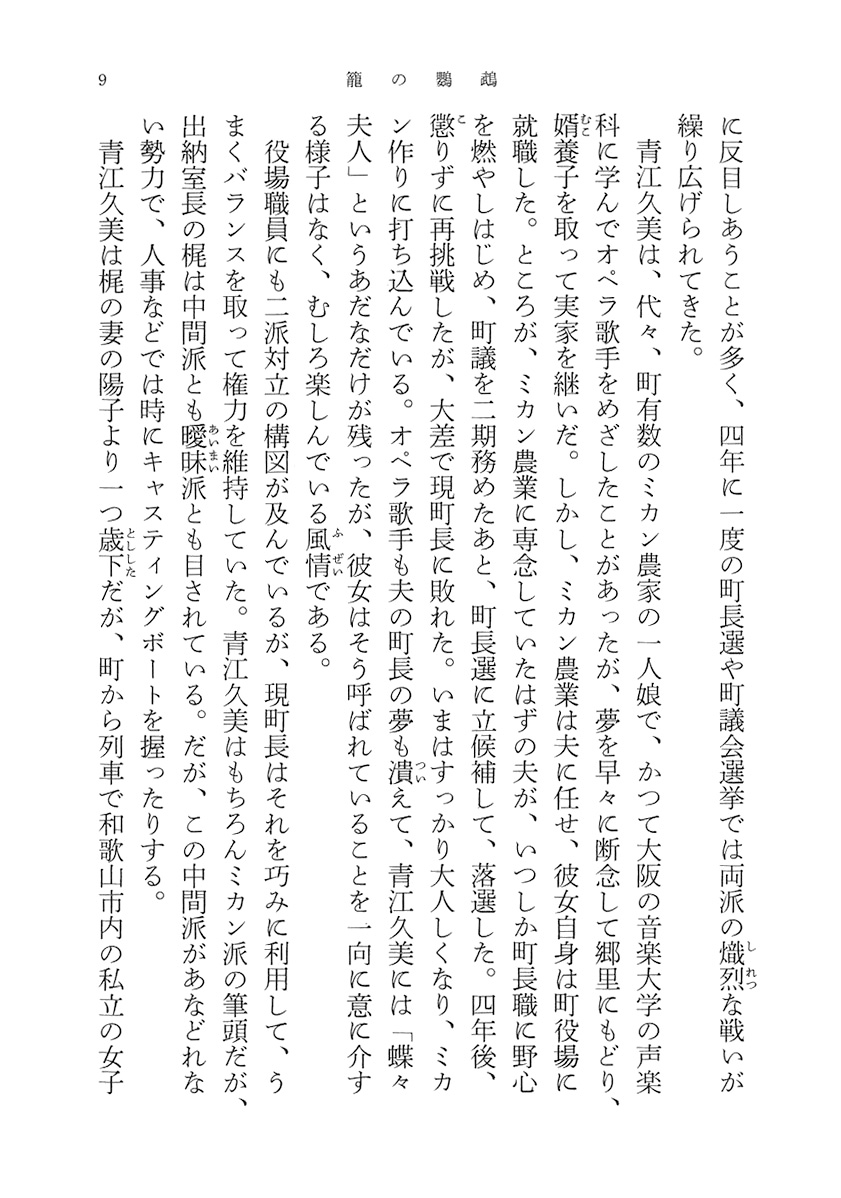 9
籠の鸚鵡
に反目しあうことが多く、四年に一度の町長選や町議会選挙では両派の熾烈な戦いが
しれつ
繰り広げられてきた。
青江久美は、代々、町有数のミカン農家の一人娘で、かつて大阪の音楽大学の声楽
科に学んでオペラ歌手をめざしたことがあったが、夢を早々に断念して郷里にもどり、
婿養子を取って実家を継いだ。しかし、ミカン農業は夫に任せ、彼女自身は町役場に
むこ
就職した。ところが、ミカン農業に専念していたはずの夫が、いつしか町長職に野心
を燃やしはじめ、町議を二期務めたあと、町長選に立候補して、落選した。四年後、
懲りずに再挑戦したが、大差で現町長に敗れた。いまはすっかり大人しくなり、ミカ
こ
ン作りに打ち込んでいる。オペラ歌手も夫の町長の夢も潰えて、青江久美には「蝶々
つい
夫人」というあだなだけが残ったが、彼女はそう呼ばれていることを一向に意に介す
る様子はなく、むしろ楽しんでいる風情である。
ふぜい
役場職員にも二派対立の構図が及んでいるが、現町長はそれを巧みに利用して、う
まくバランスを取って権力を維持していた。青江久美はもちろんミカン派の筆頭だが、
出納室長の梶は中間派とも曖昧派とも目されている。だが、この中間派があなどれな
あいまい
い勢力で、人事などでは時にキャスティングボートを握ったりする。
青江久美は梶の妻の陽子より一つ歳下だが、町から列車で和歌山市内の私立の女子
とししした